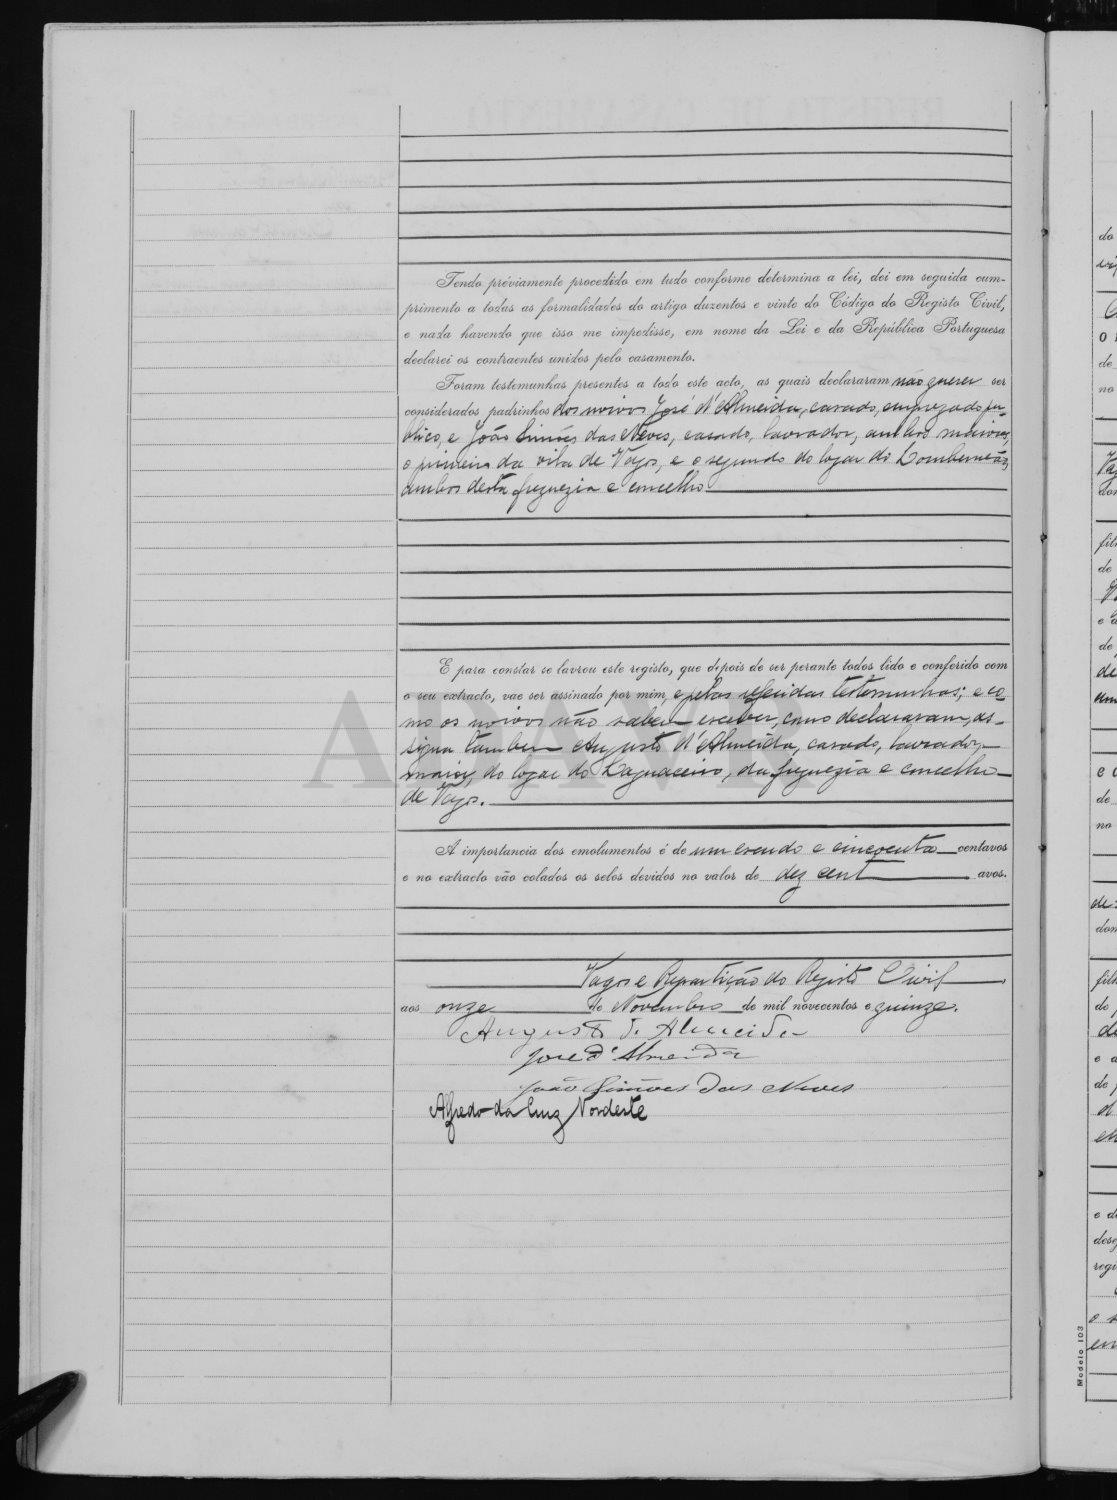 Tendo préviamente procedido em tudo conforme determina a lei, dei em seguida cum-
primento a todas as formalidades do artigo duzentos e vinte do Código do Registo Civil,
e nada havendo que isso me impedisse, em nome da Lei e da República Portuguesa
declarei os contraentes unidos pelo casamento.
Foram testemunhas presentes a todo este acto, as quais declararam não querer ser
considerados padrinhos dos noivos José d'Almeida, casado, empregado pu-
blico, e João Simões das Neves, casado, lavrador, ambos maiores,
o primeiro da vila de Vagos, e o segundo do logar do Lombomeão,
ambos desta freguezia e concelho.
E para constar se lavrou este registo, que depois de ser perante todos lido e conferido com
o seu extracto, vae ser assinado por mim, e pelas referidas testemunhas; e co-
mo os noivos não sabem escrever, como declararam, as-
signa tambem Augusto d'Almeida, casado, lavrador,
maior, do logar do Lagoaceiro, da freguezia e concelho
de Vagos.
A importancia dos emolumentos é de um escudo e cincoenta centavos
e no extracto vão colados os selos devidos no valor de dez cent avos.
Vagos e Repartição do Registo Civil
aos onze de Novembro de mil novecentos e quinze.
Augusto de Almeida
José d'Almeida
João Simões das Neves
Alfredo da Cruz Nordeste
ADAVR
do
de
no
filh
de
de
no
dom
filh
de
e d
regi
Modelo 103